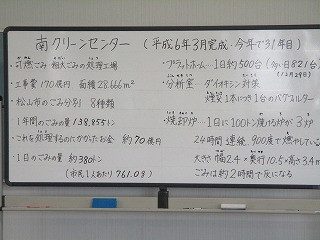 南クリーンセンター (平成6年3月完成・今年で31年目)
・可燃ごみ・粗大ごみの処理工場
・工事費 170億円 面積28.666㎡
・松山市のごみ分別 8種類
1年間のごみの量 138,855トン
・これを処理するのにかかったお金 約70億円
・1日のごみの量 約380トン
(市民1人あたり 761.0g)
・プラットホーム… 1日約500台 (多い日821台)
(12月29日)
・分析室… ダイオキシン対策
煙突1本につき1台のバグフィルター
・焼却炉… 1日に100トン焼ける炉が3つ
24時間連続、900度で燃やしている
大きさ 幅2.4×奥行10.5×高さ3.4m
ごみは約2時間で灰になる